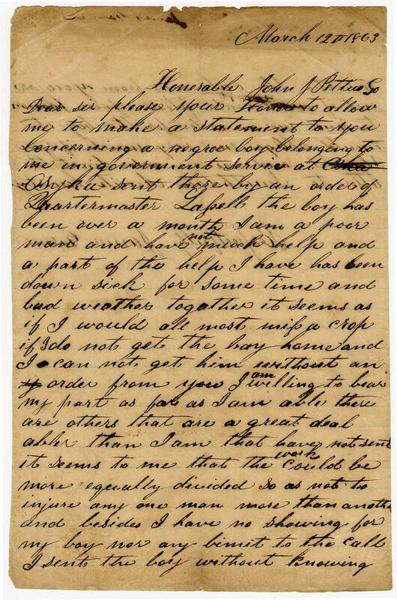 March 12th 1863
Honerable John J Pettus Go
Dear ser please your to allow
me to make a statement to you
concerning a negroe boy belonging to
me in government service at
Osyka sent there by an order of
Quartermaster the boy has
been over a month I am a poor
man and have not much help and
a part of the help I have has been
down sick for some time and
bad weather together it seems as
if I would all most miss a crop
if I do not gets the boy home and
I can not gets him without an
order from you I am willing to bear
my part as far as I am able there
are others that are a great deal
abler than I am that have not sent
it seems to me that the work could be
more equally divided so as not to
injure any one man more than another
and besides I have no showing for
my boy nor any to the call
I sent the boy without knowing